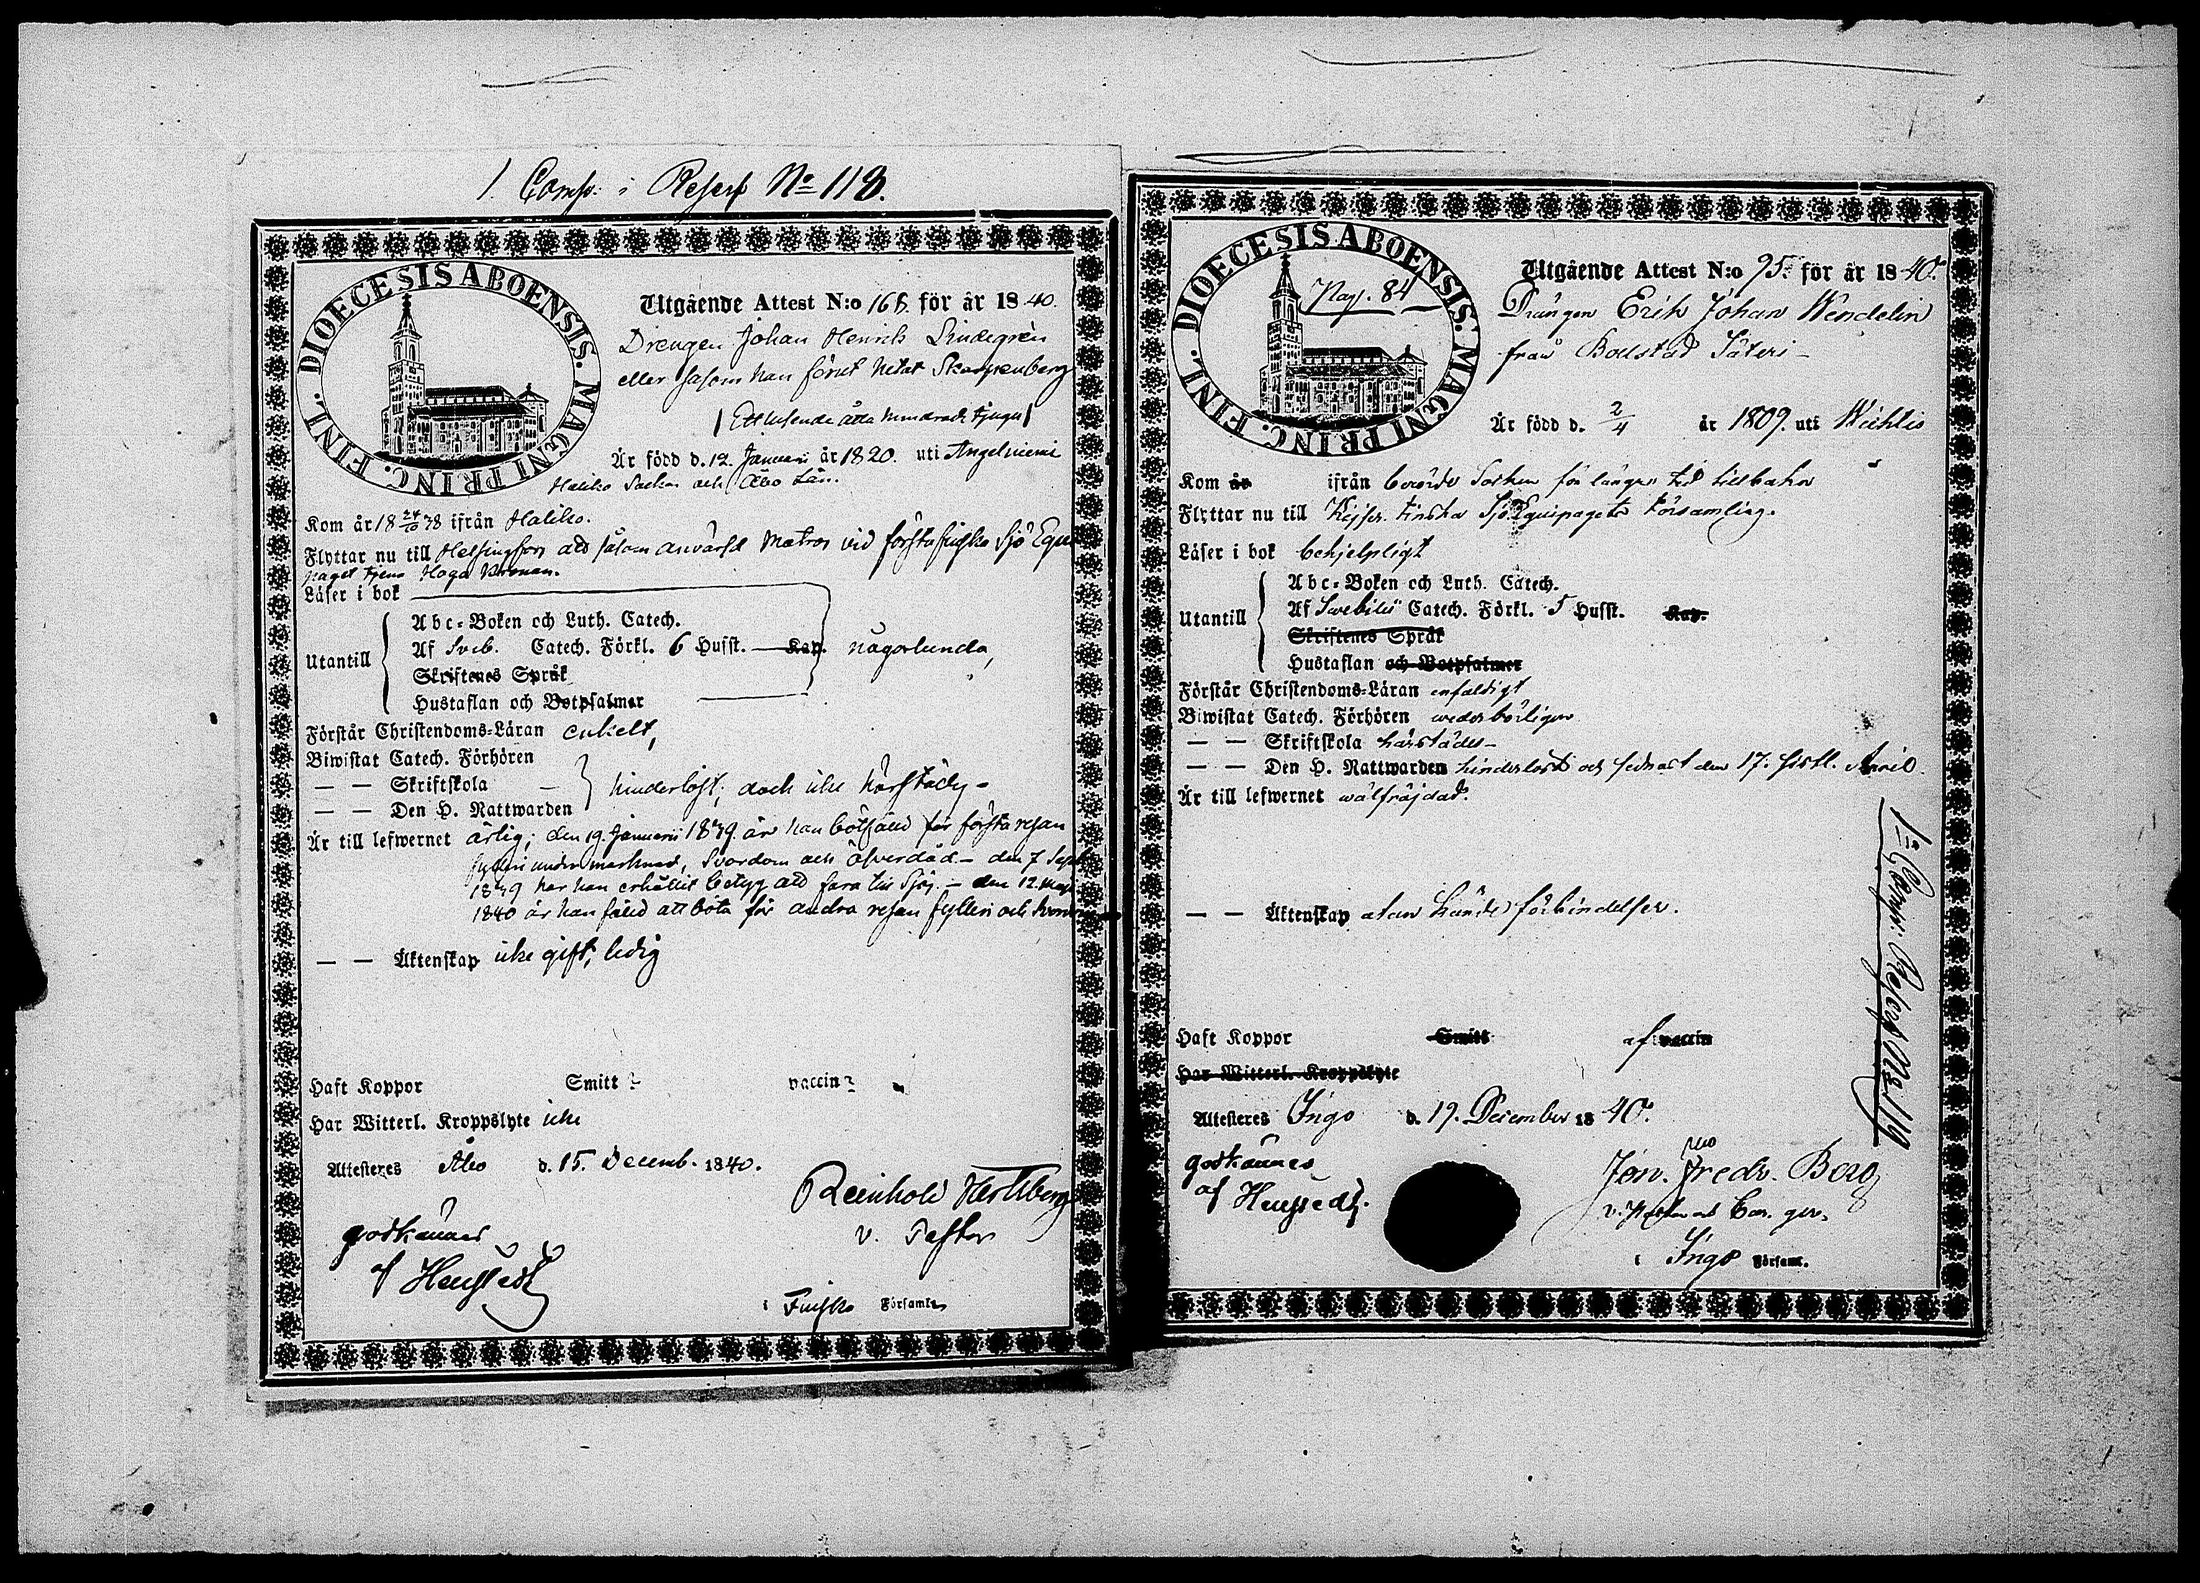 1. Comp: i Reserf No 118.
DIOECESIS ABOENSIS. MAGNI PRINC. FINL.
Utgående Attest N:o 168. för år 1840.
Drengen Johan Henrik Lindegrén
eller såsom han förut hetat Skarpenberg
(Ett tusende åtta hundrade tjugu)
Är född d. 12. Januari år 1820. uti Angelniemi
Haliko Socken och Åbo Län.
Kom år 18 24/10 38 ifrån Haliko.
Flyttar nu till Helsingfors att såsom anvärfd Matros vid första finska Sjö Equi
paget tjena Höga Kronan.
Läser i bok
Abc-Boken och Luth. Catech.
Utantill Af Sveb. Catech. Förkl. 6 Husst. Kap. någorlunda,
Skriftenes Språk
Hustaflan och Botpsalmer
Förstår Christendoms-Läran enkelt,
Biwistat Catech. Förhören
— — Skriftskola — hinderlöst; dock icke härstädes
— — Den H. Nattwarden
Är till lefwernet ärlig; den 19. Januarii 1839 är han bötfälld för första resan
fylleri under marknad, svordom och öfverdåd – den 7 Sept
1839 har han erhållit betyg att fara till Sjös. – den 12. Maji
1840 är han fälld att böta för andra resan fylleri och
— — Äktenskap icke gift; ledig
Haft Koppor Smitt ? vaccin ?
Har Witterl. Kroppslyte icke
Attesteres Åbo d. 15. Decemb. 1840.
Reinhold Hertzberg
v. Pastor
godkännes
af Heurstedt
i Finska Församl.
DIOECESIS ABOENSIS. MAGNI PRINC. FINL.
Pag. 84
Utgående Attest N:o 95. för år 1840.
Drängen Erik Johan Wendelin
från Bollstad Säteri –
Är född d. 2/4 år 1809. uti Wichtis
Kom år ifrån berörde Socken för längre tid tillbaka
Flyttar nu till Kejser. Finska Sjö Equipagets Församling.
Läser i bok behjelpligt
Abc-Boken och Luth. Catech.
Utantill Af Swebilii Catech. Förkl. 5 Husst. Kap.
Skriftenes Språk
Hustaflan och Botpsalmer
Förstår Christendoms-Läran enfaldigt
Biwistat Catech. Förhören wederbörligen
— — Skriftskola härstädes –
— — Den H. Nattwarden hinderlöst och sednast den 17. sistl. April
Är till lefwernet wälfräjdad.
— — Äktenskap utan kände förbindelser.
Haft Koppor Smitt af vaccin
Har Witterl. Kroppslyte
Attesteres Ingo d. 19. December 1840.
godkännes
af Heurstedt.
Jon. Fredr. Berg
i Ingo Församl.
1:a Comp: Reserf No 119